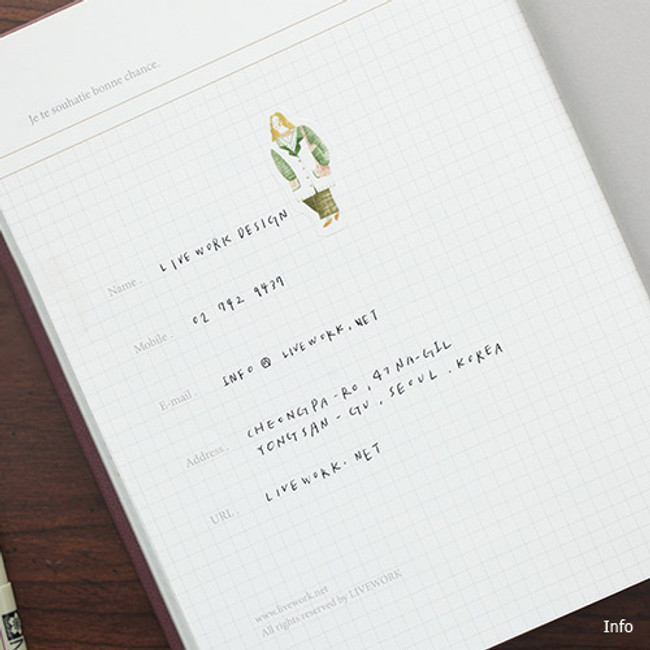 Je te souhatie bonne chance.
Name . LIVEWORK DESIGN
Mobile . 02 792 9437
E-mail . INFO @ LIVEWORK.NET
Address . CHEONGPA-RO, 47NA-GIL
YONGSAN-GU, SEOUL. KOREA
URL . LIVEWORK.NET
www.livework.net
All rights reserved by LIVEWORK
Info